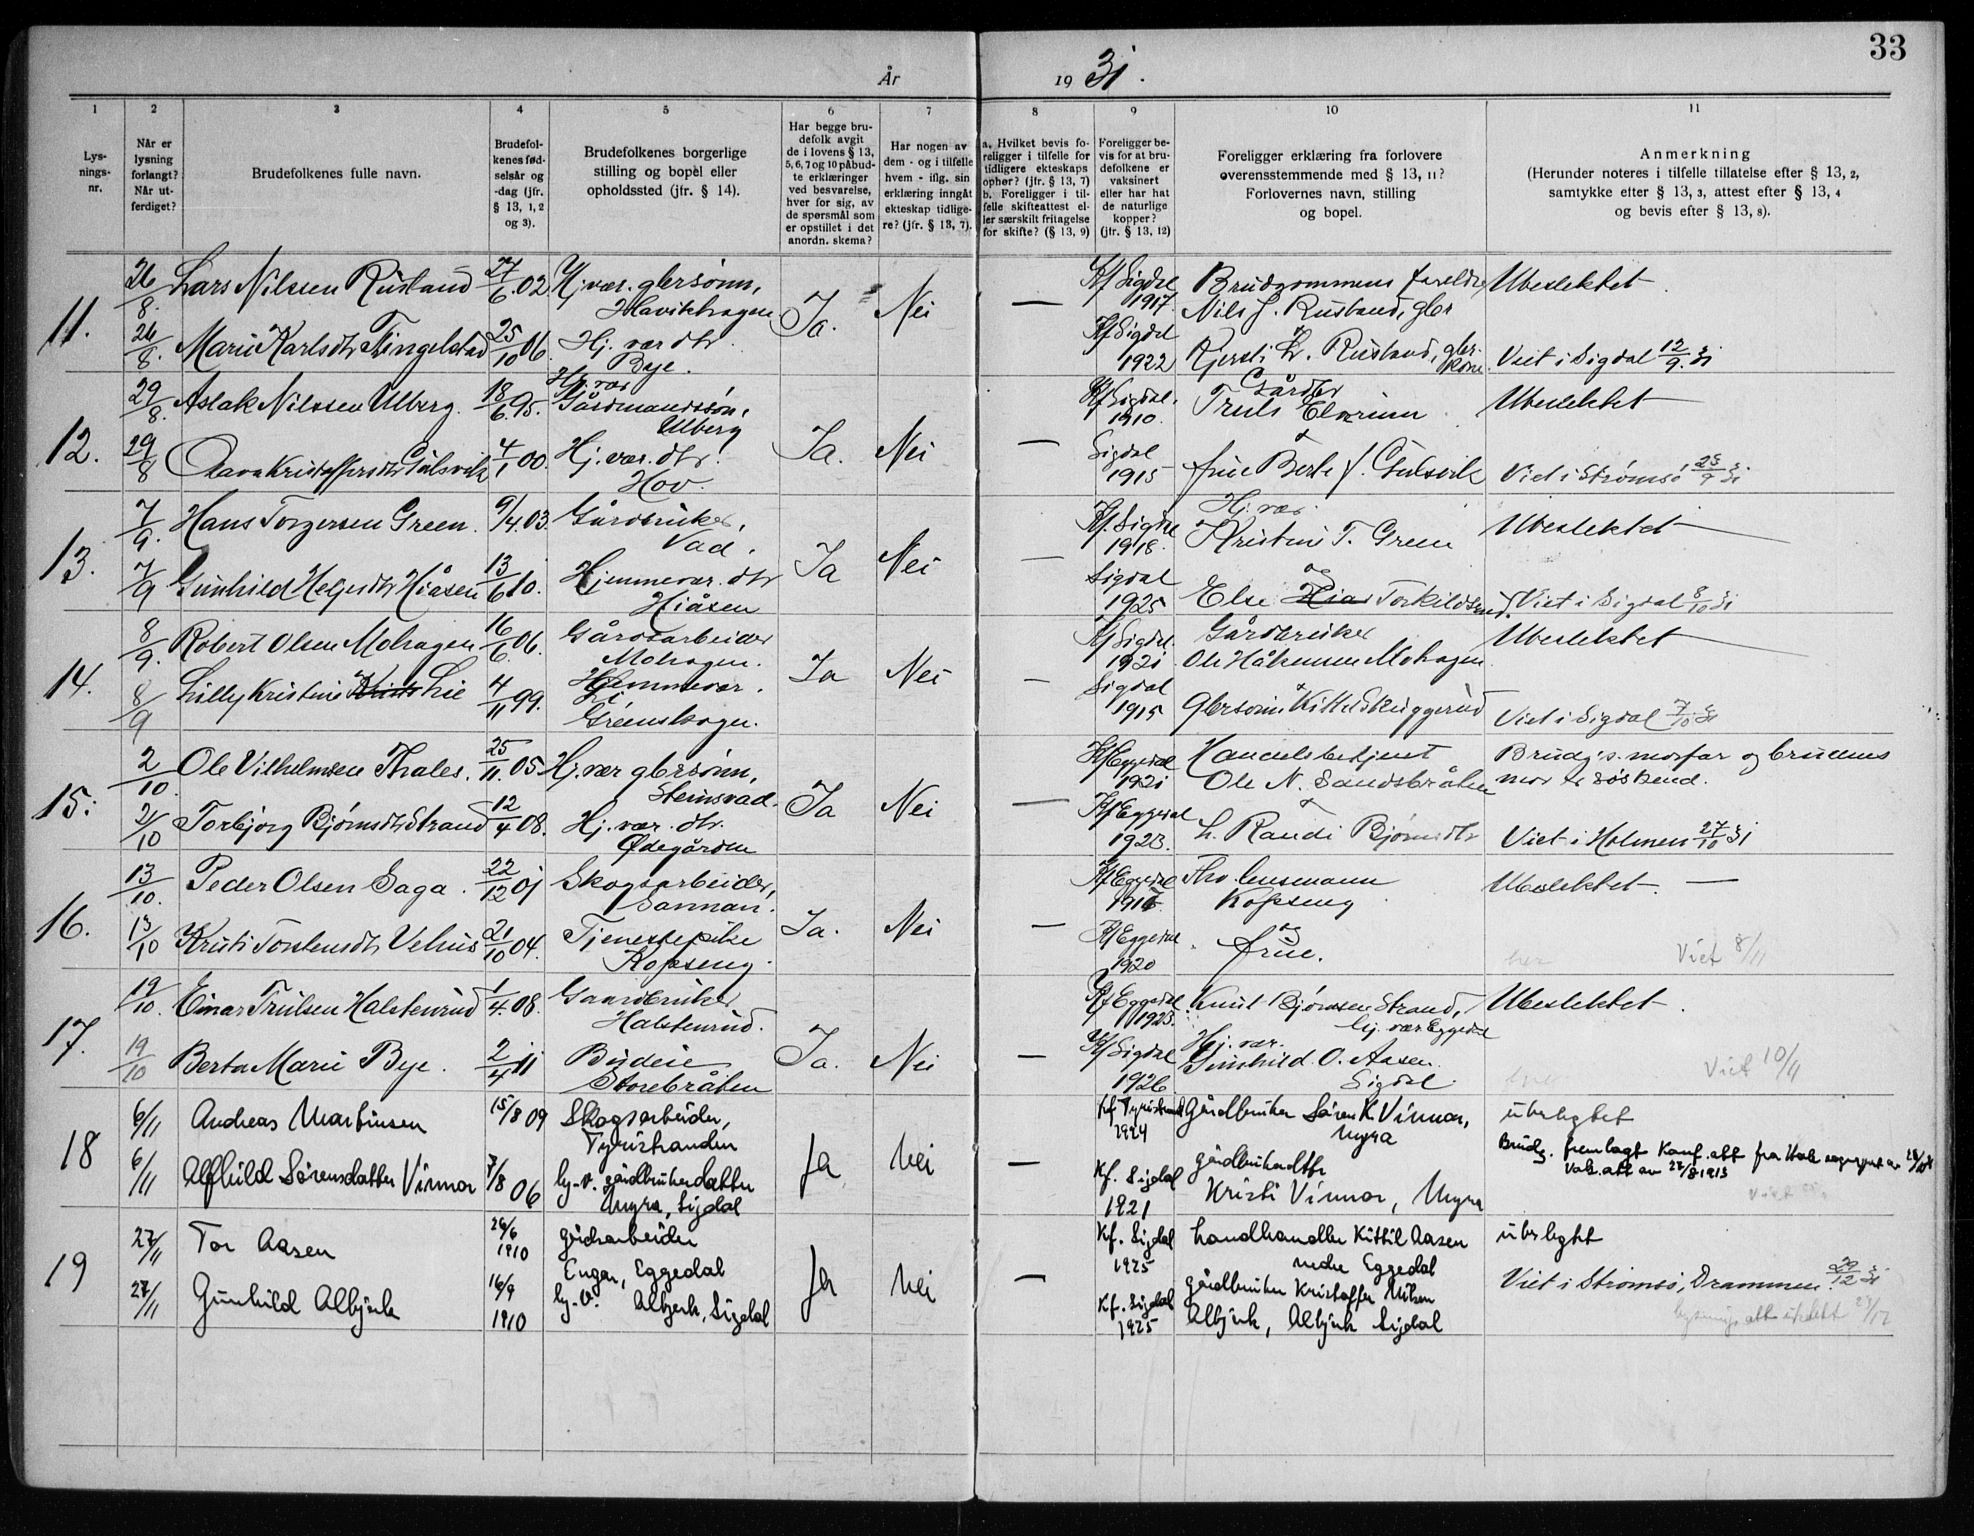 33
År 1931.
1 2 3 4 5 6 7 8 9 10 11
Lys-
nings-
nr.
Når er
lysning
forlangt?
Når ut-
ferdiget?
Brudefolkenes fulle navn.
Brudefol-
kenes fød-
selsår og
-dag (jfr.
§ 13, 1, 2
og 3).
Brudefolkenes borgerlige
stilling og bopel eller
opholdssted (jfr. § 14).
Har begge bru-
defolk avgit
de i lovens § 13,
5, 6, 7 og 10 påbud-
te erklæringer
ved besvarelse,
hver for sig, av
de spørsmål som
er opstillet i det
anordn. skema?
Har nogen av
dem - og i tilfelle
hvem - iflg. sin
erklæring inngåt
ekteskap tidlige-
re? (jfr. § 13, 7).
a. Hvilket bevis fo-
religger i tilfelle for
tidligere ekteskaps
ophør? (jfr. § 13, 7)
b. Foreligger i til-
felle skifteattest el-
ler særskilt fritagelse
for skifte? (§ 13, 9)
Foreligger be-
vis for at bru-
defolkene er
vaksinert
eller har hat
de naturlige
kopper?
(jfr. § 13, 12)
Foreligger erklæring fra forlovere
overensstemmende med § 13, 11?
Forlovernes navn, stilling
og bopel.
Anmerkning
(Herunder noteres i tilfelle tillatelse efter § 13, 2,
samtykke efter § 13, 3, attest efter § 13, 4
og bevis efter § 13, 8).
11.
26/8. Lars Nilssen Rustand 27/6.02 Hj.vær. gbrsønn,
Ja. Nei — Kf Sigdal 1917 Brudgommens foreldre Ubeslektet.
Nils J. Rustand, gbr
26/8. Marie Karlsdtr Tingelstad 25/10 06. Hj. vær dtr. Bye.
Kf Sigdal 1922 Kjersti L. Rustand, gbr. kone. Viet i Sigdal 12/9.31
12.
29/8. Aslak Nilssen Ulberg. 18/6.95. Hj. vær Gårdmandssøn, Ulberg
Ja. Nei — Kf Sigdal. 1910 Gårdbr Truls Ubeslektet
29/8 Gulsvik 4/1 00. Hj. vær. dtr. Hov.
Sigdal 1915 frue Berte Gulsvik Viet i Strømsø 25/9 31
13.
7/9. Hans Torgersen Green. 9/4.03. Gårdbruker, Vad.
Ja Nei — Kf. Sigdal 1918. Hj. vær Kristine T. Green Ubeslektet
7/9 Gunhild Helgesdtr Hiåsen 13/6 10. Hjemmevær. dtr Hiåsen
Sigdal 1925 og Else Torkildsrud. Viet i Sigdal 8/10 31
14.
8/9. Robert Olsen Mohagen 16/6. 06. Gårdsarbeider Mohagen.
Ja Nei — Kf Sigdal. 1921 Gårdbruker Ole Håkensen Mohagen. Ubeslektet
8/9 Lilly Kristine Lie 4/11 99. Hjemmevær. Li Greenskogen.
Sigdal 1915 Gbrsønn Kittel Skuggerud Viet i Sigdal 7/10. 31
15.
2/10. Ole Vilhelmsen Thales. 25/11. 05 Hj. vær gbrsønn, Steinsvad.
Ja Nei — Kf Eggedal 1921 Handelsbetjent Ole N. Sandsbråten Brudg's. morfar og brudens mor er søskend.
2/10 Torbjørg Bjørnsdtr Strand 12/4 08. Hj. vær. dtr. Ødegården
Kf Eggedal 1923. Randi Bjørnsdtr Viet i Holmen 27/10 31
16.
13/10. Peder Olsen Saga. 22/12 01 Skogsarbeider,
Ja. Nei — Kf Eggedal Kopseng Ubeslektet. —
13/10 Kristi Torstensdtr Velius 21/10 04. Tjenestepike Kopseng.
Kf Eggedal. 1920 og frue. her Viet 8/11
17.
19/10. Einar Trulsen Halstenrud 1/4. 08. Gaardbruker Halstenrud.
Ja. Nei — Kf Eggedal 1923. Knut Bjørnsen Strand, hj. vær Eggedal Ubeslektet.
19/10 Berta Marie Bye. 2/4 11 Budeie Storebråten
Kf Sigdal 1926 Hj. vær. Gunhild O. Aasen Sigdal. her Viet 10/11
18
6/11 Andreas Martinsen 15/8 09 Skogsarbeider, Tyristranden
Ja Nei — Kf Tyristrand 1924 Gårdbruker Søren K Vinnor, Myra ubeslegtet
Brudg. fremlagt Konf. att fra
Vaks. att av 27/8 1913
6/11 Alfhild Sørensdatter Vinnor 7/8 06 hj.-v. gårdbrukerdatter Myra, Sigdal
Kf. Sigdal 1921 gårdbrukerdttr Kristi Vinnor, Myra Viet
19
27/11 Tor Aasen 26/6 1910 gårdsarbeider Enger, Eggedal
Ja Nei — Kf. Sigdal 1925 Landhandler Kittil Aasen nedre Eggedal ubeslegtet
27/11 Gunhild Albjerk 16/9 1910 hj.-v. Albjerk, Sigdal
Kf. Sigdal 1925 gårdbruker Kristoffer Nilsen Albjerk, Albjerk Sigdal Viet i Strømsø, Drammen. 29/12 31
lysnings att utstedt 29/12